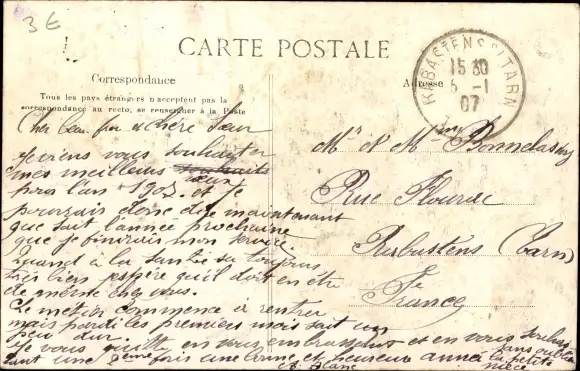 3 €
CARTE POSTALE
Correspondance
Tous les pays étrangers n'acceptent pas la
correspondance au recto, se renseigner à la Poste
Adresse
RABASTENS (TARN)
15 30
5 -1
07
Cher beau frère et chère Sœur
Je viens vous souhaiter
mes meilleurs souhaits
vœux
pour l'an 1907. et Je
pourrais donc dire maintenant
que sait l'année prochaine
que je finirais mon
Quand à la santé sa toujours
très bien, espère qu'il doit en être
de même chez vous.
Le métier commence à rentrer
mais pardi les premiers mois sait un
peu dur.
Je vous quitte en vous embrassant et en vous
sans oublier
tant une 2eme fois une bonne et heureuse année la petite
nièce
Mr et Mme
Rue
Rabastens (Tarn)
France